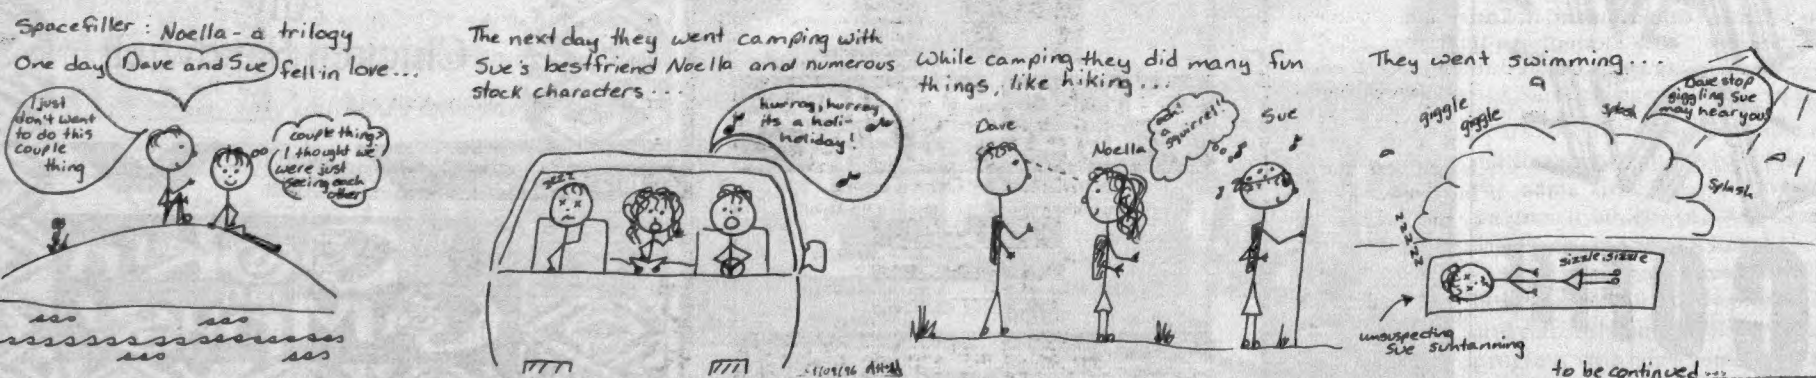 Spacefiller : Noella - a trilogy
One day Dave and Sue fell in love...
I just
don't want
to do this
couple
thing
couple thing?
I thought we
were just
seeing each
other
The next day they went camping with
Sue's bestfriend Noella and numerous
stock characters...
hurray, hurray
its a holi-
holiday!
zzzz
While camping they did many fun
things, like hiking...
Dave
Noella
ooh!
a
squirrel!
Sue
They went swimming...
giggle
giggle
splash
Dave stop
giggling Sue
may hear you
splash
zzzzz
sizzle, sizzle
unsuspecting
Sue suntanning
to be continued...